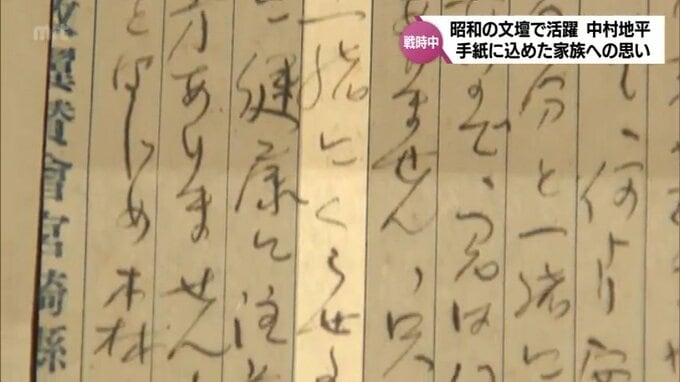 mrt
戦時中
昭和の文壇で活躍 中村地平
手紙に込めた家族への思い
、何より
分と一緒に
で、
ありません、只
一緒にくらせる
に健康に注
方ありません
はじめ森
翼賛會宮崎縣